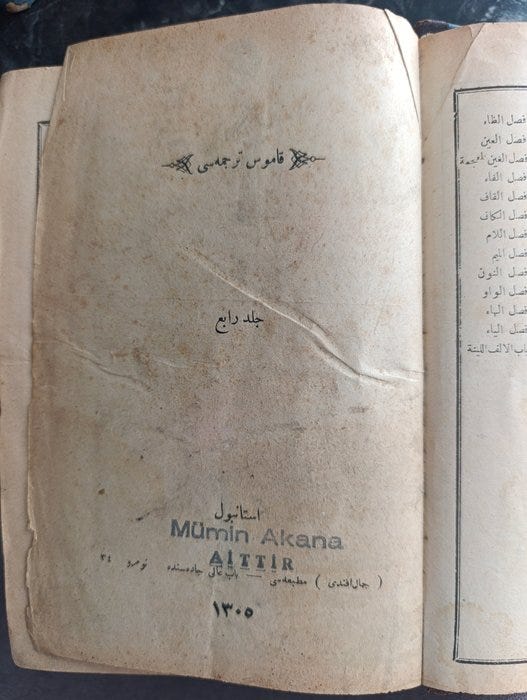 قاموس ترجمه‌سی
جلد رابع
استانبول
Mümin Akana
AİTTİR
( جمال افندی ) مطبعه‌سی — باب عالی جاده‌سنده نومرو ٣٤
١٣٠٥
فصل الظاء
فصل العين
فصل الغين المعجمة
فصل الفاء
فصل القاف
فصل الكاف
فصل اللام
فصل الميم
فصل النون
فصل الواو
فصل الهاء
فصل الياء
باب الالف اللينة